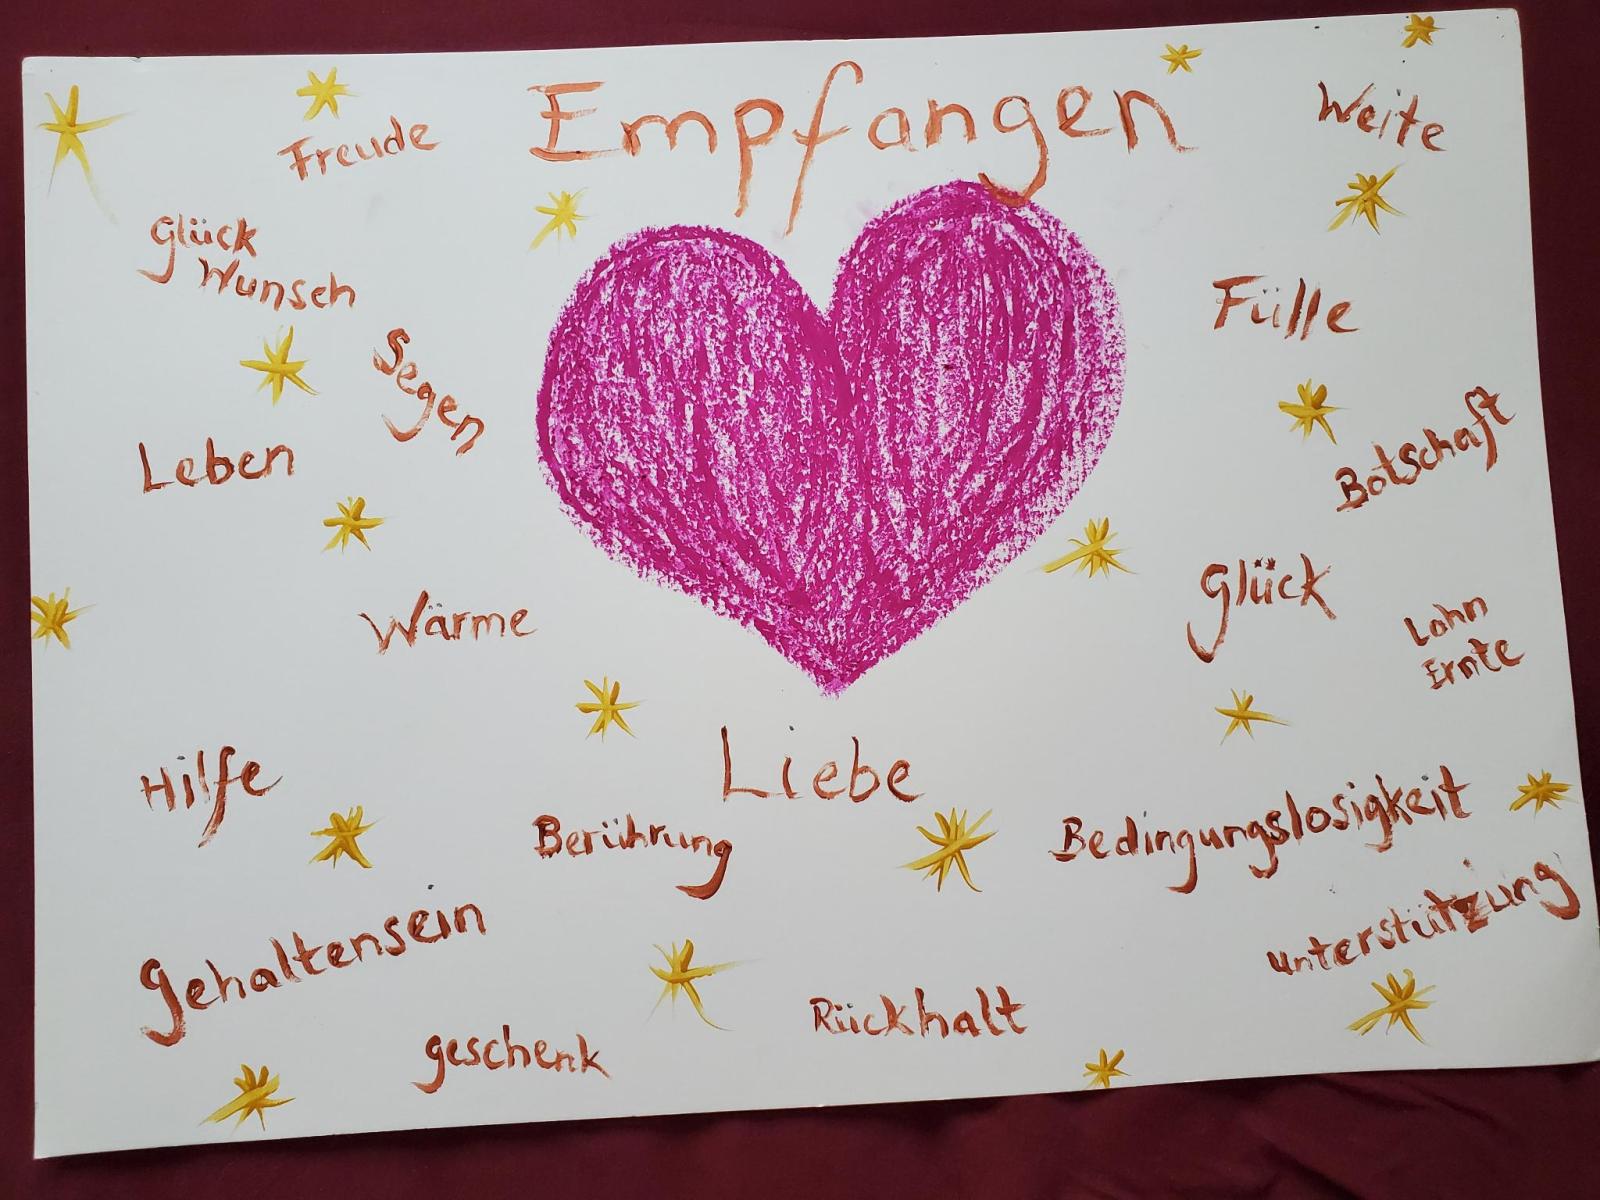 Empfangen
Freude
Weite
Glück
Wunsch
Fülle
Segen
Leben
Botschaft
Glück
Wärme
Lohn
Ernte
Liebe
Hilfe
Berührung
Bedingungslosigkeit
Gehaltensein
unterstützung
Rückhalt
geschenk